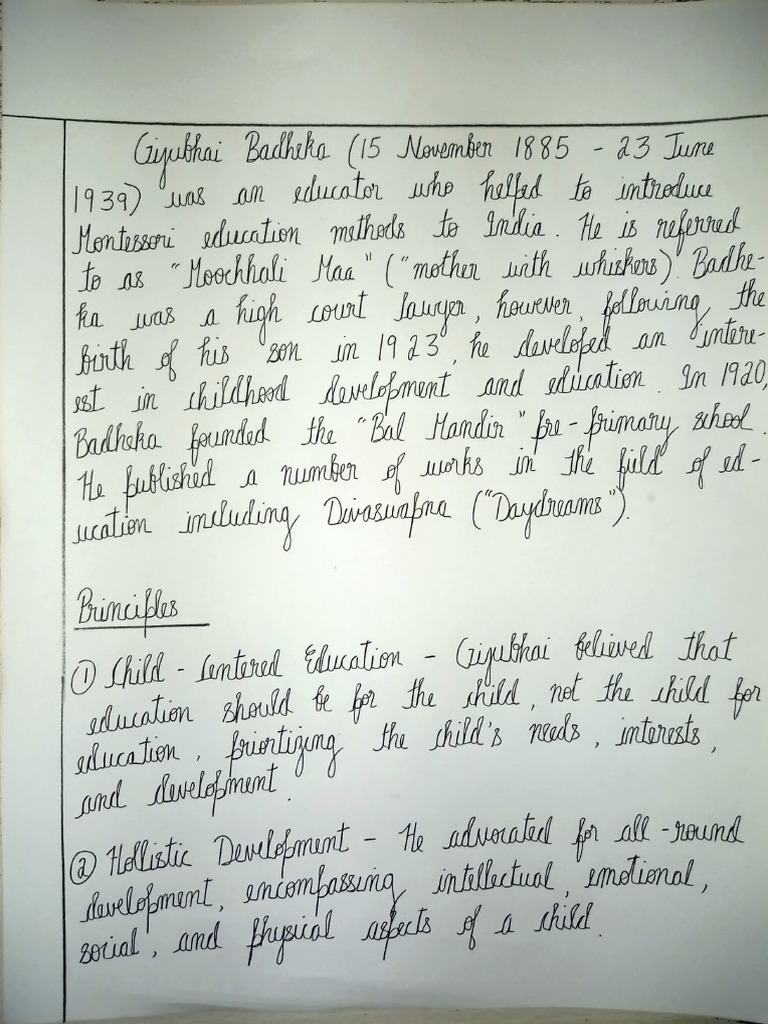 Gijubhai Badheka (15 November 1885 - 23 June
1939) was an educator who helped to introduce
Montessori education methods to India. He is referred
to as "Moochhali Maa" ("mother with whiskers). Badhe-
ka was a high court lawyer, however, following the
birth of his son in 1923, he developed an intere-
est in childhood development and education. In 1920,
Badheka founded the "Bal Mandir" pre-primary school.
He published a number of works in the field of ed-
ucation including Divaswapna ("Daydreams").
Principles
① Child - Centered Education - Gijubhai believed that
education should be for the child, not the child for
education, priortizing the child's needs, interests,
and development.
② Hollistic Development - He advocated for all-round
development, encompassing intellectual, emotional,
social, and physical aspects of a child.